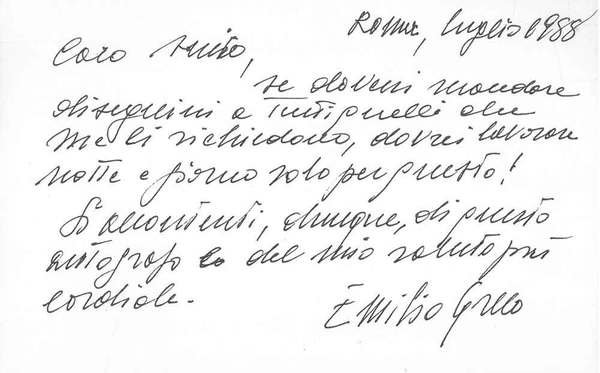 Roma, luglio 1988
Caro amico,
se dovessi mandare
disegnini a tutti quelli che
me li richiedono, dovrei lavorare
notte e giorno solo per questo!
S'accontenti, dunque, di questo
autografo e del mio saluto più
cordiale.
Emilio Greco